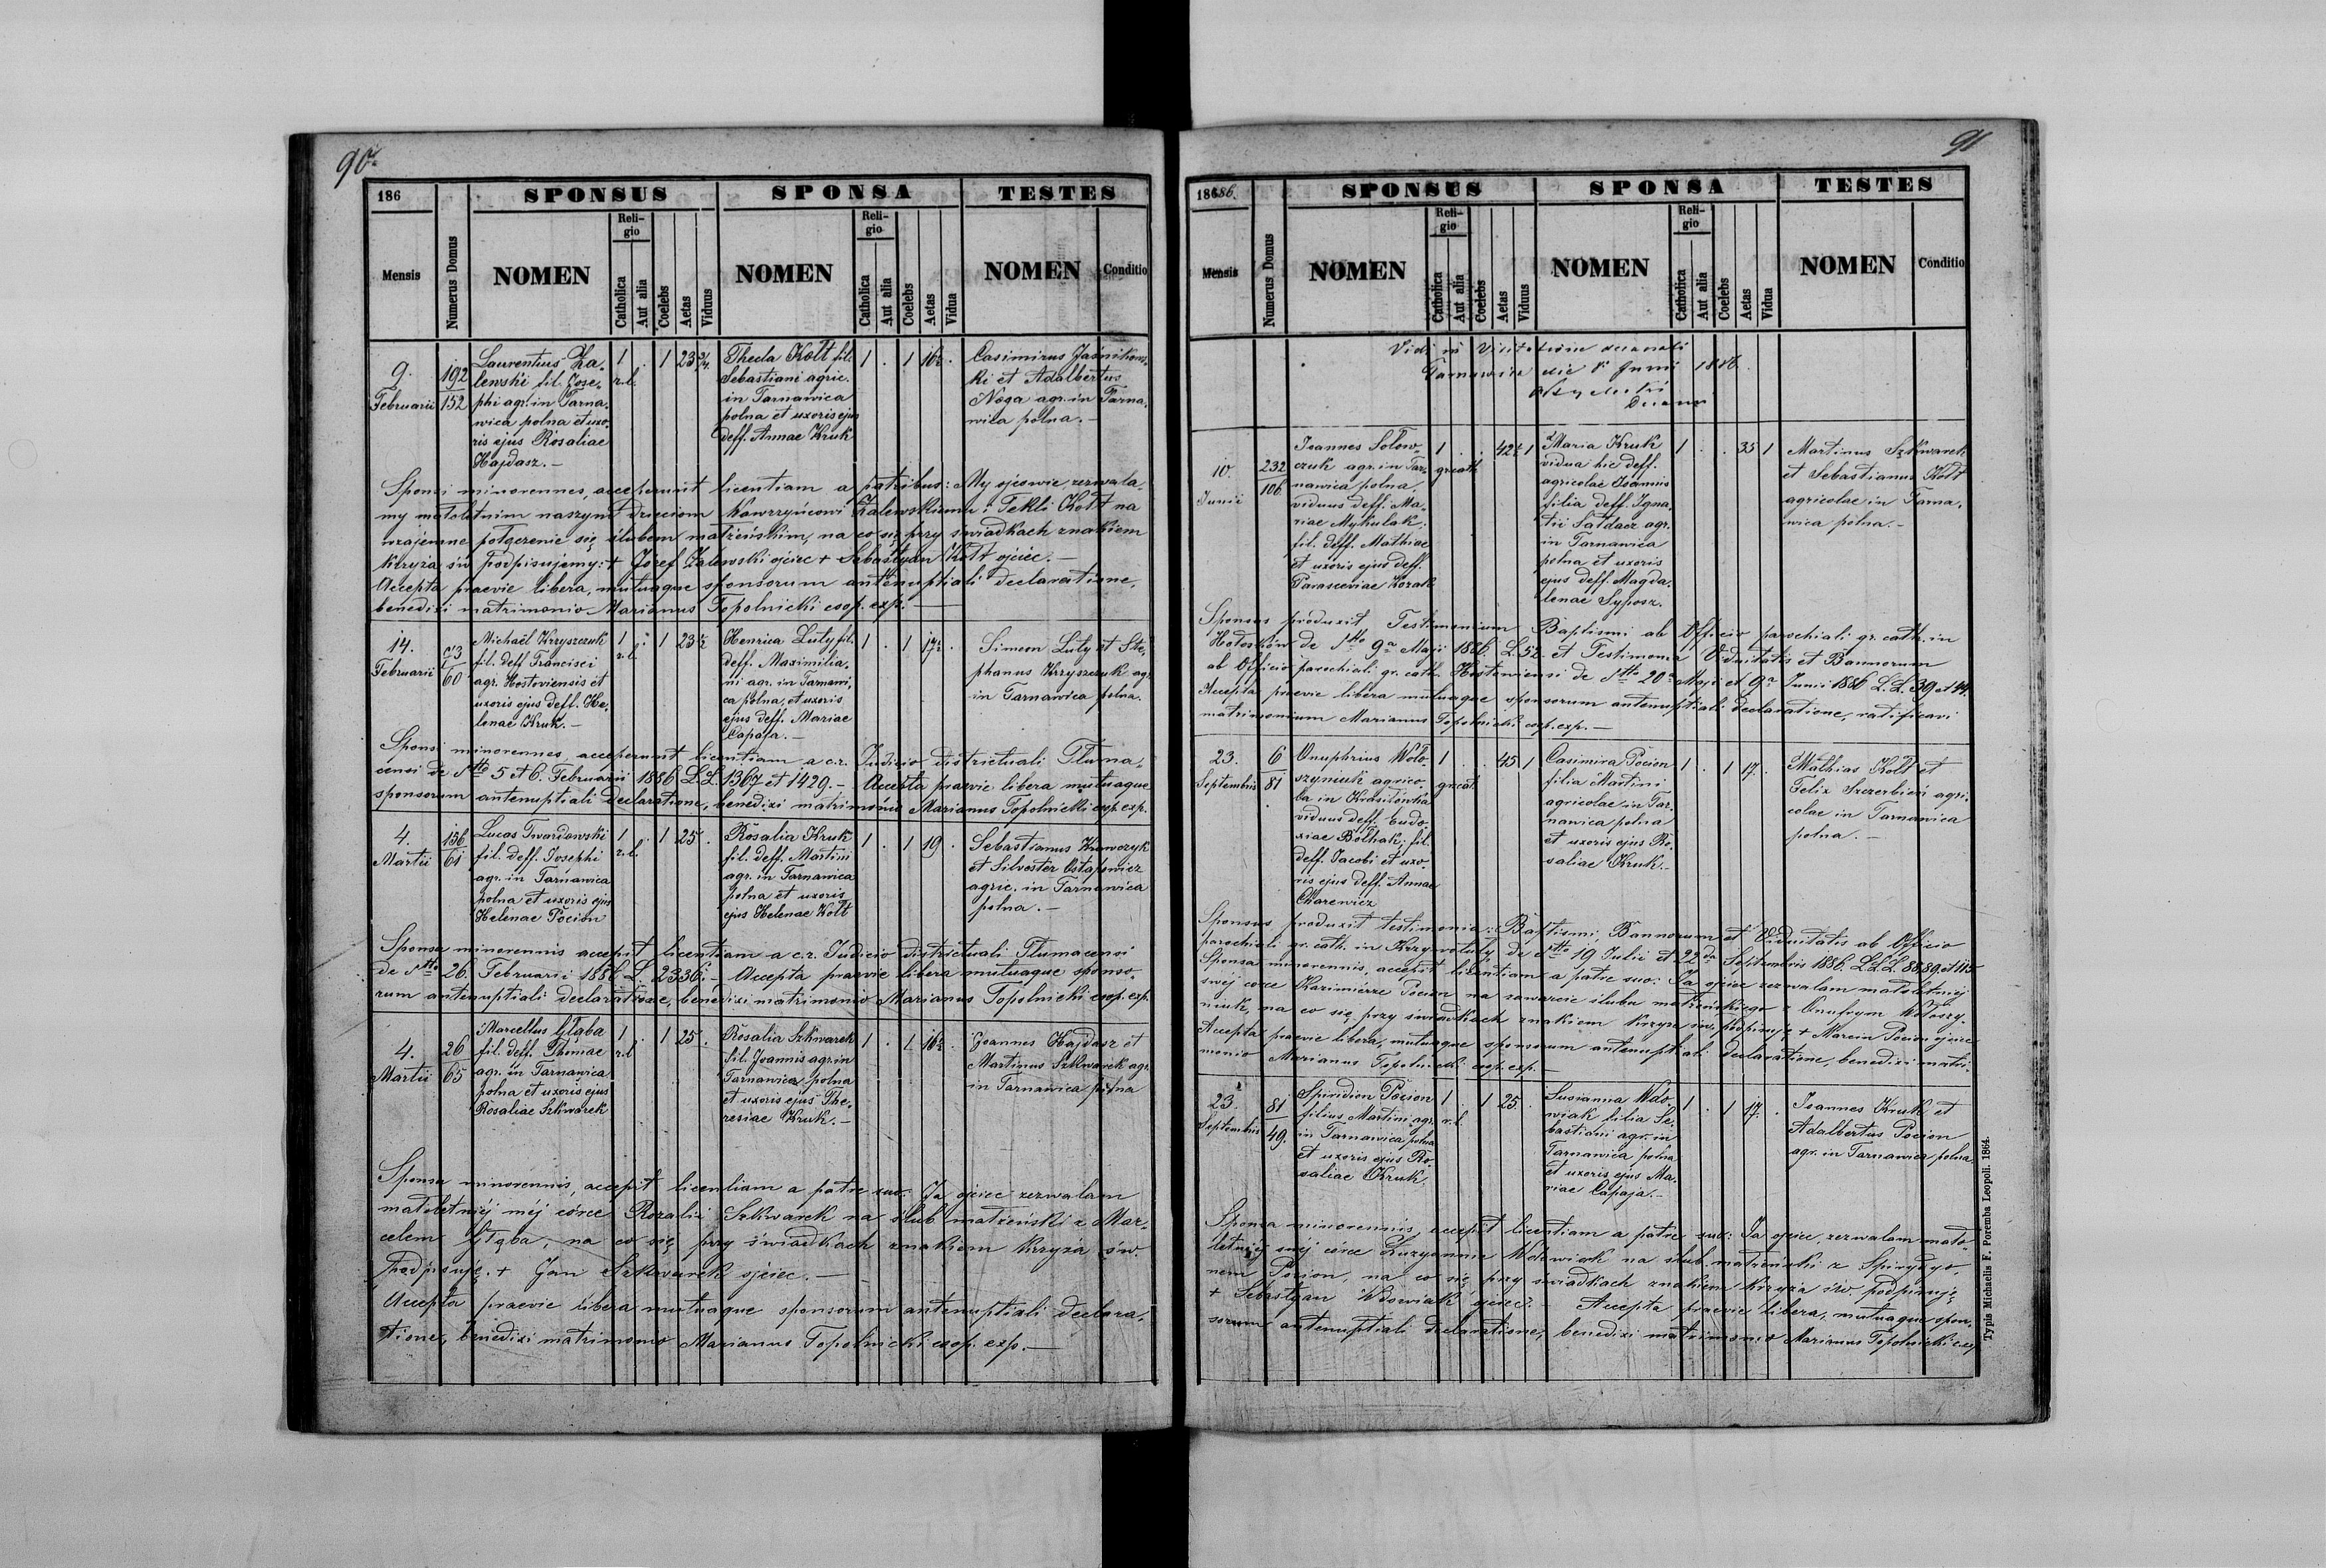 90
186
SPONSUS SPONSA TESTES
Mensis
Numerus Domus
NOMEN
Reli-
gio
Catholica
Aut alia
Coelebs
Aetas
Viduus
NOMEN
Reli-
gio
Catholica
Aut alia
Coelebs
Aetas
Vidua
NOMEN
Conditio
9.
Februarii
192
152
Laurentius Za-
lewski fil. Jose-
phi agr. in Tarna-
wica polna et uxo-
ris ejus Rosaliae
Hajdasz. —
1 . 1 23 3/4
r.l.
Thecla Kołt fil.
Sebastiani agric.
in Tarnawica
polna et uxoris ejus
deff. Annae Kruk
1 . 1 16½ .
Casimirus Jaśnikows-
ki et Adalbertus
Noga agr. in Tarna-
wica polna. —
Sponsi minorennes, acceperunt licentiam a patribus: My ojcowie, zezwala-
my małoletnim naszym dzieciom Wawrzyńcowi Zalewskiemu i Tekli Kołt na
wzajemne połączenie się ślubem małżeńskim, na co się przy świadkach znakiem
krzyża św. podpisujemy: + Józef Zalewski ojciec + Sebastyan Kołt ojciec. —
Accepta praevie libera, mutuaque sponsorum antenuptiali declaratione,
benedixi matrimonio Marianus Topolnicki coop. exp. —
14.
Februarii
93
60
Michaël Krzyszczuk
fil. deff. Francisci
agr. Hostoviensis et
uxoris ejus deff. He-
lenae Kruk. —
1 . 1 23½
r.l.
Henrica Luty fil.
deff. Maximilia-
ni agr. in Tarnawi-
ca polna, et uxoris
ejus deff. Mariae
Capaja. —
1 . 1 17½ .
Simeon Luty et Ste-
phanus Krzyszczuk agr.
in Tarnawica polna.
Sponsi minorennes, acceperunt licentiam a c.r. Judicio districtuali Tłuma-
censi de dtto 5 et 6. Februarii 1886 L.L. 1367 et 1429. — Accepta praevie libera mutuaque
sponsorum antenuptiali declaratione, benedixi matrimonio Marianus Topolnicki coop. exp.
4.
Martii
156
61
Lucas Twardowski
fil. deff. Josephi
agr. in Tarnawica
polna et uxoris ejus
Helenae Pocion
1 . 1 25 .
r.l.
Rosalia Kruk
fil. deff. Martini
agr. in Tarnawica
polna et uxoris
ejus Helenae Kołt
1 . 1 19 .
Sebastianus Krawczyk
et Silvester Ostapowicz
agric. in Tarnawica
polna. —
Sponsa minorennis accepit licentiam a c.r. Judicio districtuali Tłumacensi
de dtto 26. Februarii 1886 L. 2336. — Accepta praevie libera mutuaque sponso-
rum antenuptiali declaratione, benedixi matrimonio Marianus Topolnicki coop. exp.
4.
Martii
26
65
Marcellus Głąba
fil. deff. Thomae
agr. in Tarnawica
polna et uxoris ejus
Rosaliae Szkwarek
1 . 1 25 .
r.l.
Rosalia Szkwarek
fil. Joannis agr. in
Tarnawica polna
et uxoris ejus The-
resiae Kruk. —
1 . 1 16½ .
Joannes Hajdasz et
Martinus Szkwarek agr.
in Tarnawica polna
Sponsa minorennis, accepit licentiam a patre suo: Ja ojciec zezwalam
małoletniéj méj córce Rozalii Szkwarek na ślub małżeński z Mar-
celem Głąba, na co się przy świadkach znakiem krzyża św.
podpisuję. + Jan Szkwarek ojciec. —
Accepta praevie libera mutuaque sponsorum antenuptiali declara-
tione, benedixi matrimonio Marianus Topolnicki coop. exp. —
91
1886.
SPONSUS SPONSA TESTES
Mensis
Numerus Domus
NOMEN
Reli-
gio
Catholica
Aut alia
Coelebs
Aetas
Viduus
NOMEN
Reli-
gio
Catholica
Aut alia
Coelebs
Aetas
Vidua
NOMEN
Conditio
Vidi in Visitatione decanali
Tarnawica die 8 Junii 1886.
10.
Junii
232
106
Joannes Sołow-
czuk agr. in Tar-
nawica polna,
viduus deff. Ma-
riae Mykulak,
fil. deff. Mathiae
et uxoris ejus deff.
Parasceviae Kozak
1 . . 42½ 1
gr.cath.
Maria Kruk
vidua hic deff.
agricolae Joannis
filia deff. Igna-
tii Sałdacz agr.
in Tarnawica
polna et uxoris
ejus deff. Magda-
lenae Syposz.
1 . . 35 1
Martinus Szkwarek
et Sebastianus Kołt
agricolae in Tarna-
wica polna. —
Sponsus produxit Testimonium Baptismi ab Officio parochiali gr. cath. in
de dtto 9a Maji 1886 L. 52 et Testimonia Viduitatis et Bannorum
ab Officio parochiali gr. cath. Hostoviensi de dtto 20a Maji et 9a Junii 1886 L.L. 39 et 44.
Accepta praevie libera mutuaque sponsorum antenuptiali declaratione, ratificavi
matrimonium Marianus Topolnicki coop. exp. —
23.
Septembris
6
81
Onuphrius Woło-
szyniuk agrico-
la in Krasiłówka
viduus deff. Eudo-
xiae Bołhak, fil.
deff. Jacobi et uxo-
ris ejus deff. Annae
Charewicz
1 . . 45 1
gr.cat.
Casimira Pocion
filia Martini
agricolae in Tar-
nawica polna
et uxoris ejus Ro-
saliae Kruk. —
1 . 1 17 .
Mathias Kołt et
Felix Szczerbicki agri-
colae in Tarnawica
polna. —
Sponsus produxit testimonia: Baptismi, Bannorum et Viduitatis ab Officio
parochiali gr. cath. in Krzywotuły de dtto 19 Julii et 22da Septembris 1886. L.L.L. 88, 89 et 115
Sponsa minorennis, accepit licentiam a patre suo: Ja ojciec zezwalam małoletniéj
swéj córce Kazimierze Pocion na zawarcie ślubu małżeńskiego z Onufrym Wołoszy-
niuk, na co się przy świadkach znakiem krzyża św. podpisuję + Marcin Pocion ojciec
Accepta praevie libera, mutuaque sponsorum antenuptiali declaratione, benedixi matri-
monio Marianus Topolnicki coop. exp. —
23.
Septembris
81
49.
Spiridion Pocion
filius Martini agr.
in Tarnawica polna
et uxoris ejus Ro-
saliae Kruk.
1 . 1 25 .
r.l.
Susianna Wdo-
wiak filia Se-
bastiani agr. in
Tarnawica polna
et uxoris ejus Ma-
riae Capaja. —
1 . 1 17. .
Joannes Kruk et
Adalbertus Pocion
agr. in Tarnawica polna
Sponsa minorennis, accepit licentiam a patre suo: Ja ojciec, zezwalam mało-
letniéj swéj córce Zuzannie Wdowiak na ślub małżeński z Spirydyo-
nem Pocion, na co się przy świadkach znakiem krzyża św. podpisuję
+ Sebastyan Wdowiak ojciec. — Accepta praevie libera, mutuaque spon-
sorum antenuptiali declaratione, benedixi matrimonio Marianus Topolnicki
Typis Michaelis F. Poremba Leopoli. 1864.